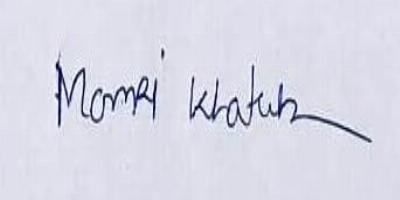 Momri Khatun